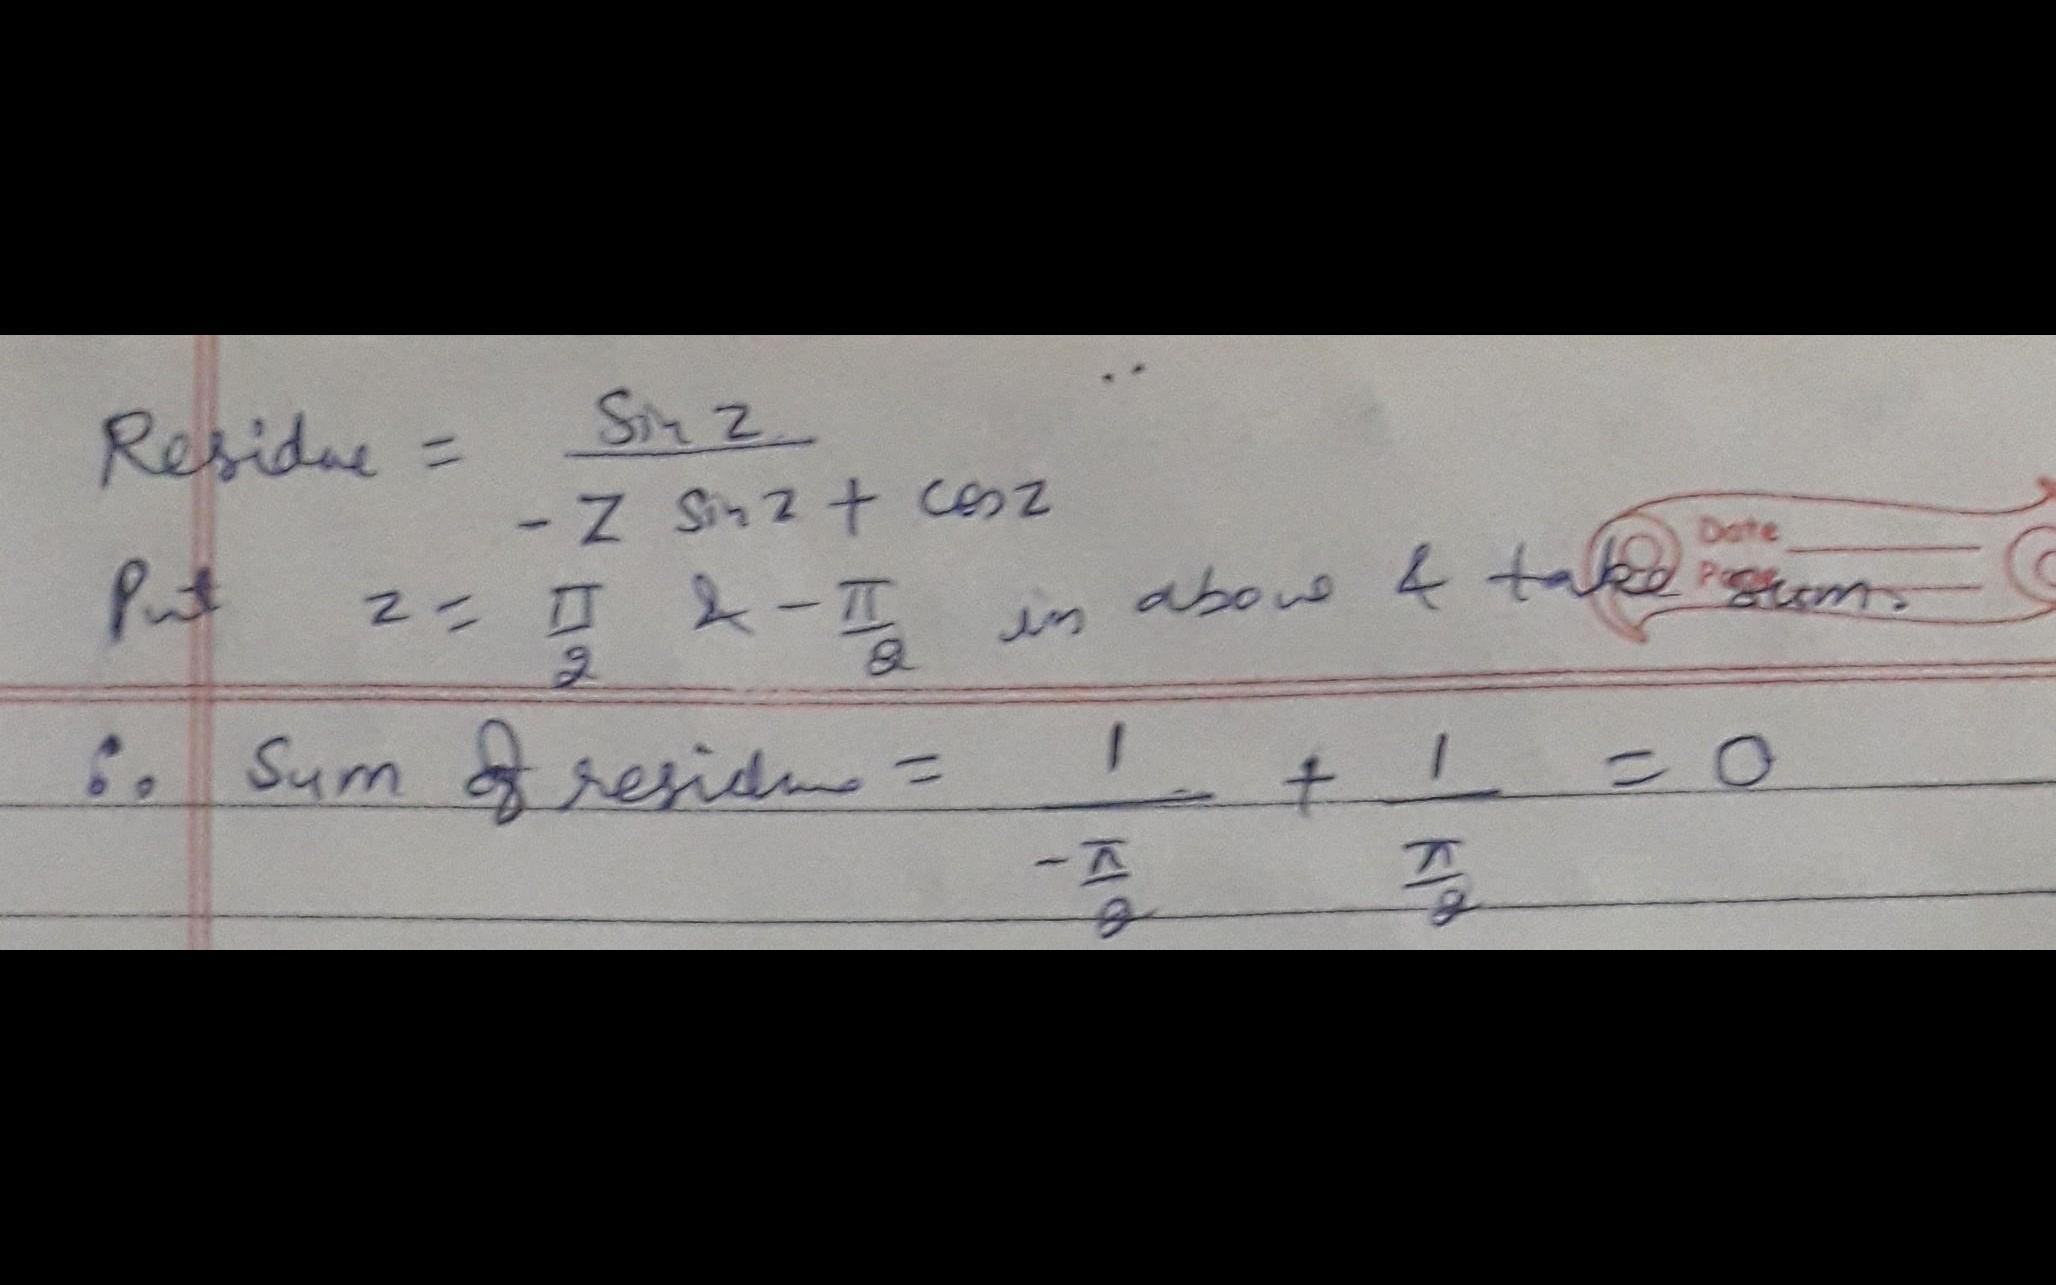 Residue = Sin z / -z sin z + cos z
Date
Put z = π/2 & -π/2 in above & take sum.
∴ Sum of residue = 1/(-π/2) + 1/(π/2) = 0